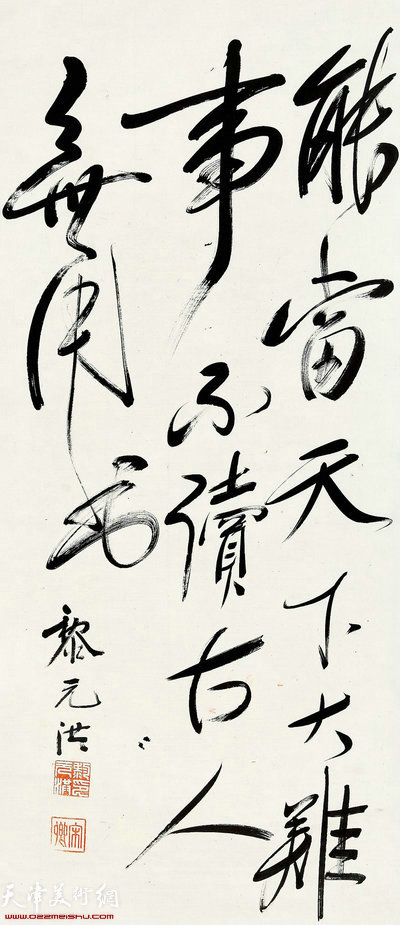 能當天下大難
事不讀古人
無用書
黎元洪
宋卿
天津美術網
www.022meishu.com